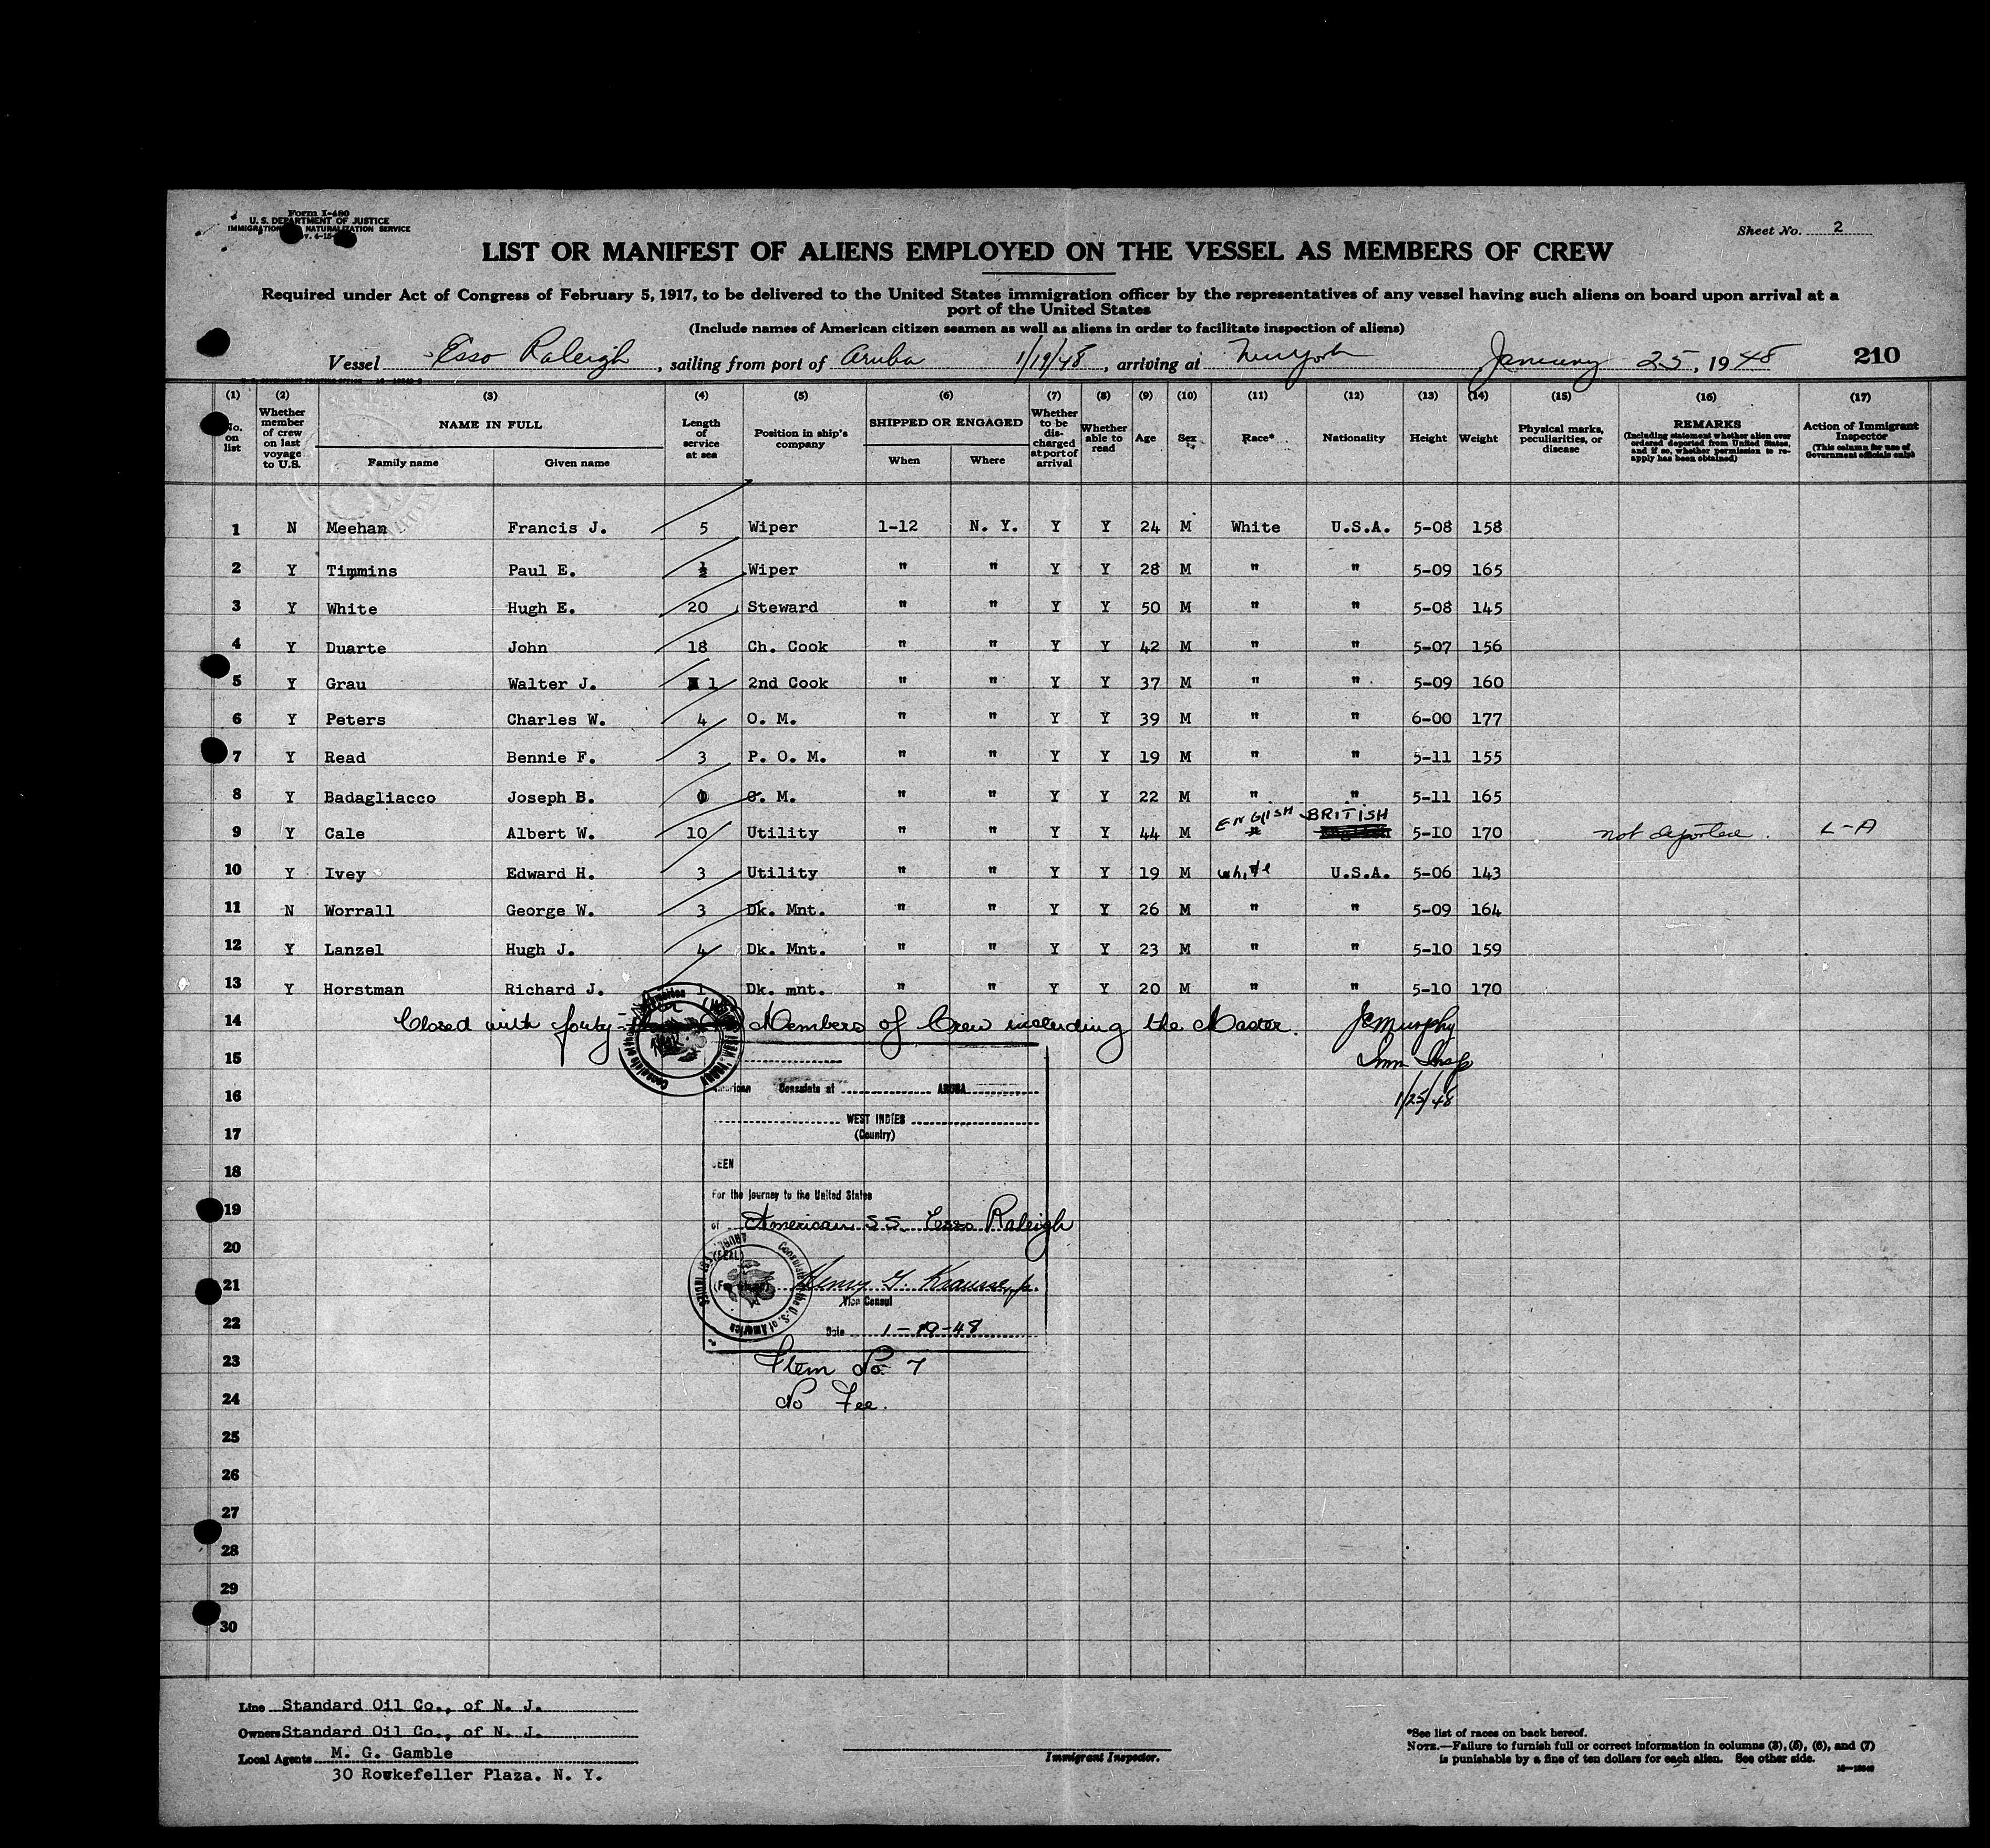 Form I-480
U. S. DEPARTMENT OF JUSTICE
IMMIGRATION NATURALIZATION SERVICE
Sheet No. 2
LIST OR MANIFEST OF ALIENS EMPLOYED ON THE VESSEL AS MEMBERS OF CREW
Required under Act of Congress of February 5, 1917, to be delivered to the United States immigration officer by the representatives of any vessel having such aliens on board upon arrival at a
port of the United States
(Include names of American citizen seamen as well as aliens in order to facilitate inspection of aliens)
Vessel Esso Raleigh, sailing from port of Aruba 1/19/48, arriving at New York January 25, 1948 210
(1) (2) (3) (4) (5) (6) (7) (8) (9) (10) (11) (12) (13) (14) (15) (16) (17)
No. on list Whether member of crew on last voyage to U.S. NAME IN FULL Family name Given name Length of service at sea Position in ship's company SHIPPED OR ENGAGED When Where Whether to be discharged at port of arrival Whether able to read Age Sex Race* Nationality Height Weight Physical marks, peculiarities, or disease REMARKS (Including statement whether alien ever ordered deported from United States, and if so, whether permission to reapply has been obtained) Action of Immigrant Inspector (This column for use of Government officials only)
1 N Meehan Francis J. 5 Wiper 1-12 N. Y. Y Y 24 M White U.S.A. 5-08 158
2 Y Timmins Paul E. ½ Wiper " " Y Y 28 M " " 5-09 165
3 Y White Hugh E. 20 Steward " " Y Y 50 M " " 5-08 145
4 Y Duarte John 18 Ch. Cook " " Y Y 42 M " " 5-07 156
5 Y Grau Walter J. 1 2nd Cook " " Y Y 37 M " " 5-09 160
6 Y Peters Charles W. 4 O. M. " " Y Y 39 M " " 6-00 177
7 Y Read Bennie F. 3 P. O. M. " " Y Y 19 M " " 5-11 155
8 Y Badagliacco Joseph B. M. " " Y Y 22 M " " 5-11 165
9 Y Cale Albert W. 10 Utility " " Y Y 44 M ENGlISH BRITISH 5-10 170 not deported. L-A
10 Y Ivey Edward H. 3 Utility " " Y Y 19 M white U.S.A. 5-06 143
11 N Worrall George W. 3 Dk. Mnt. " " Y Y 26 M " " 5-09 164
12 Y Lanzel Hugh J. 4 Dk. Mnt. " " Y Y 23 M " " 5-10 159
13 Y Horstman Richard J. 1 Dk. mnt. " " Y Y 20 M " " 5-10 170
14 Closed with forty- Members of Crew including the Master. JC Murphy
15 Imm Insp
16 American Consulate at ARUBA 1/25/48
17 WEST INDIES
(Country)
18 SEEN
19 For the journey to the United States
of American SS. Esso Raleigh
20 (SEAL)
21 Henry G. Krausse, Jr.
Vice Consul
22 Date 1-19-48
Consulate of the U.S. of America
23 Item No. 7
24 No Fee.
25
26
27
28
29
30
Line Standard Oil Co., of N. J.
Owners Standard Oil Co., of N. J.
Local Agents M. G. Gamble
30 Rockefeller Plaza. N. Y.
Immigrant Inspector.
*See list of races on back hereof.
NOTE.—Failure to furnish full or correct information in columns (3), (5), (6), and (7)
is punishable by a fine of ten dollars for each alien. See other side.